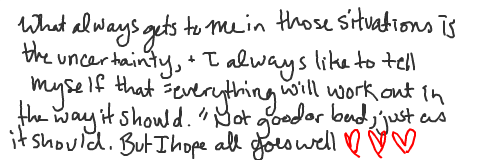 What always gets to me in those situations is
the uncertainty, + I always like to tell
myself that "everything will work out in
the way it should." Not good or bad, just as
it should. But I hope all goes well ♡♡♡